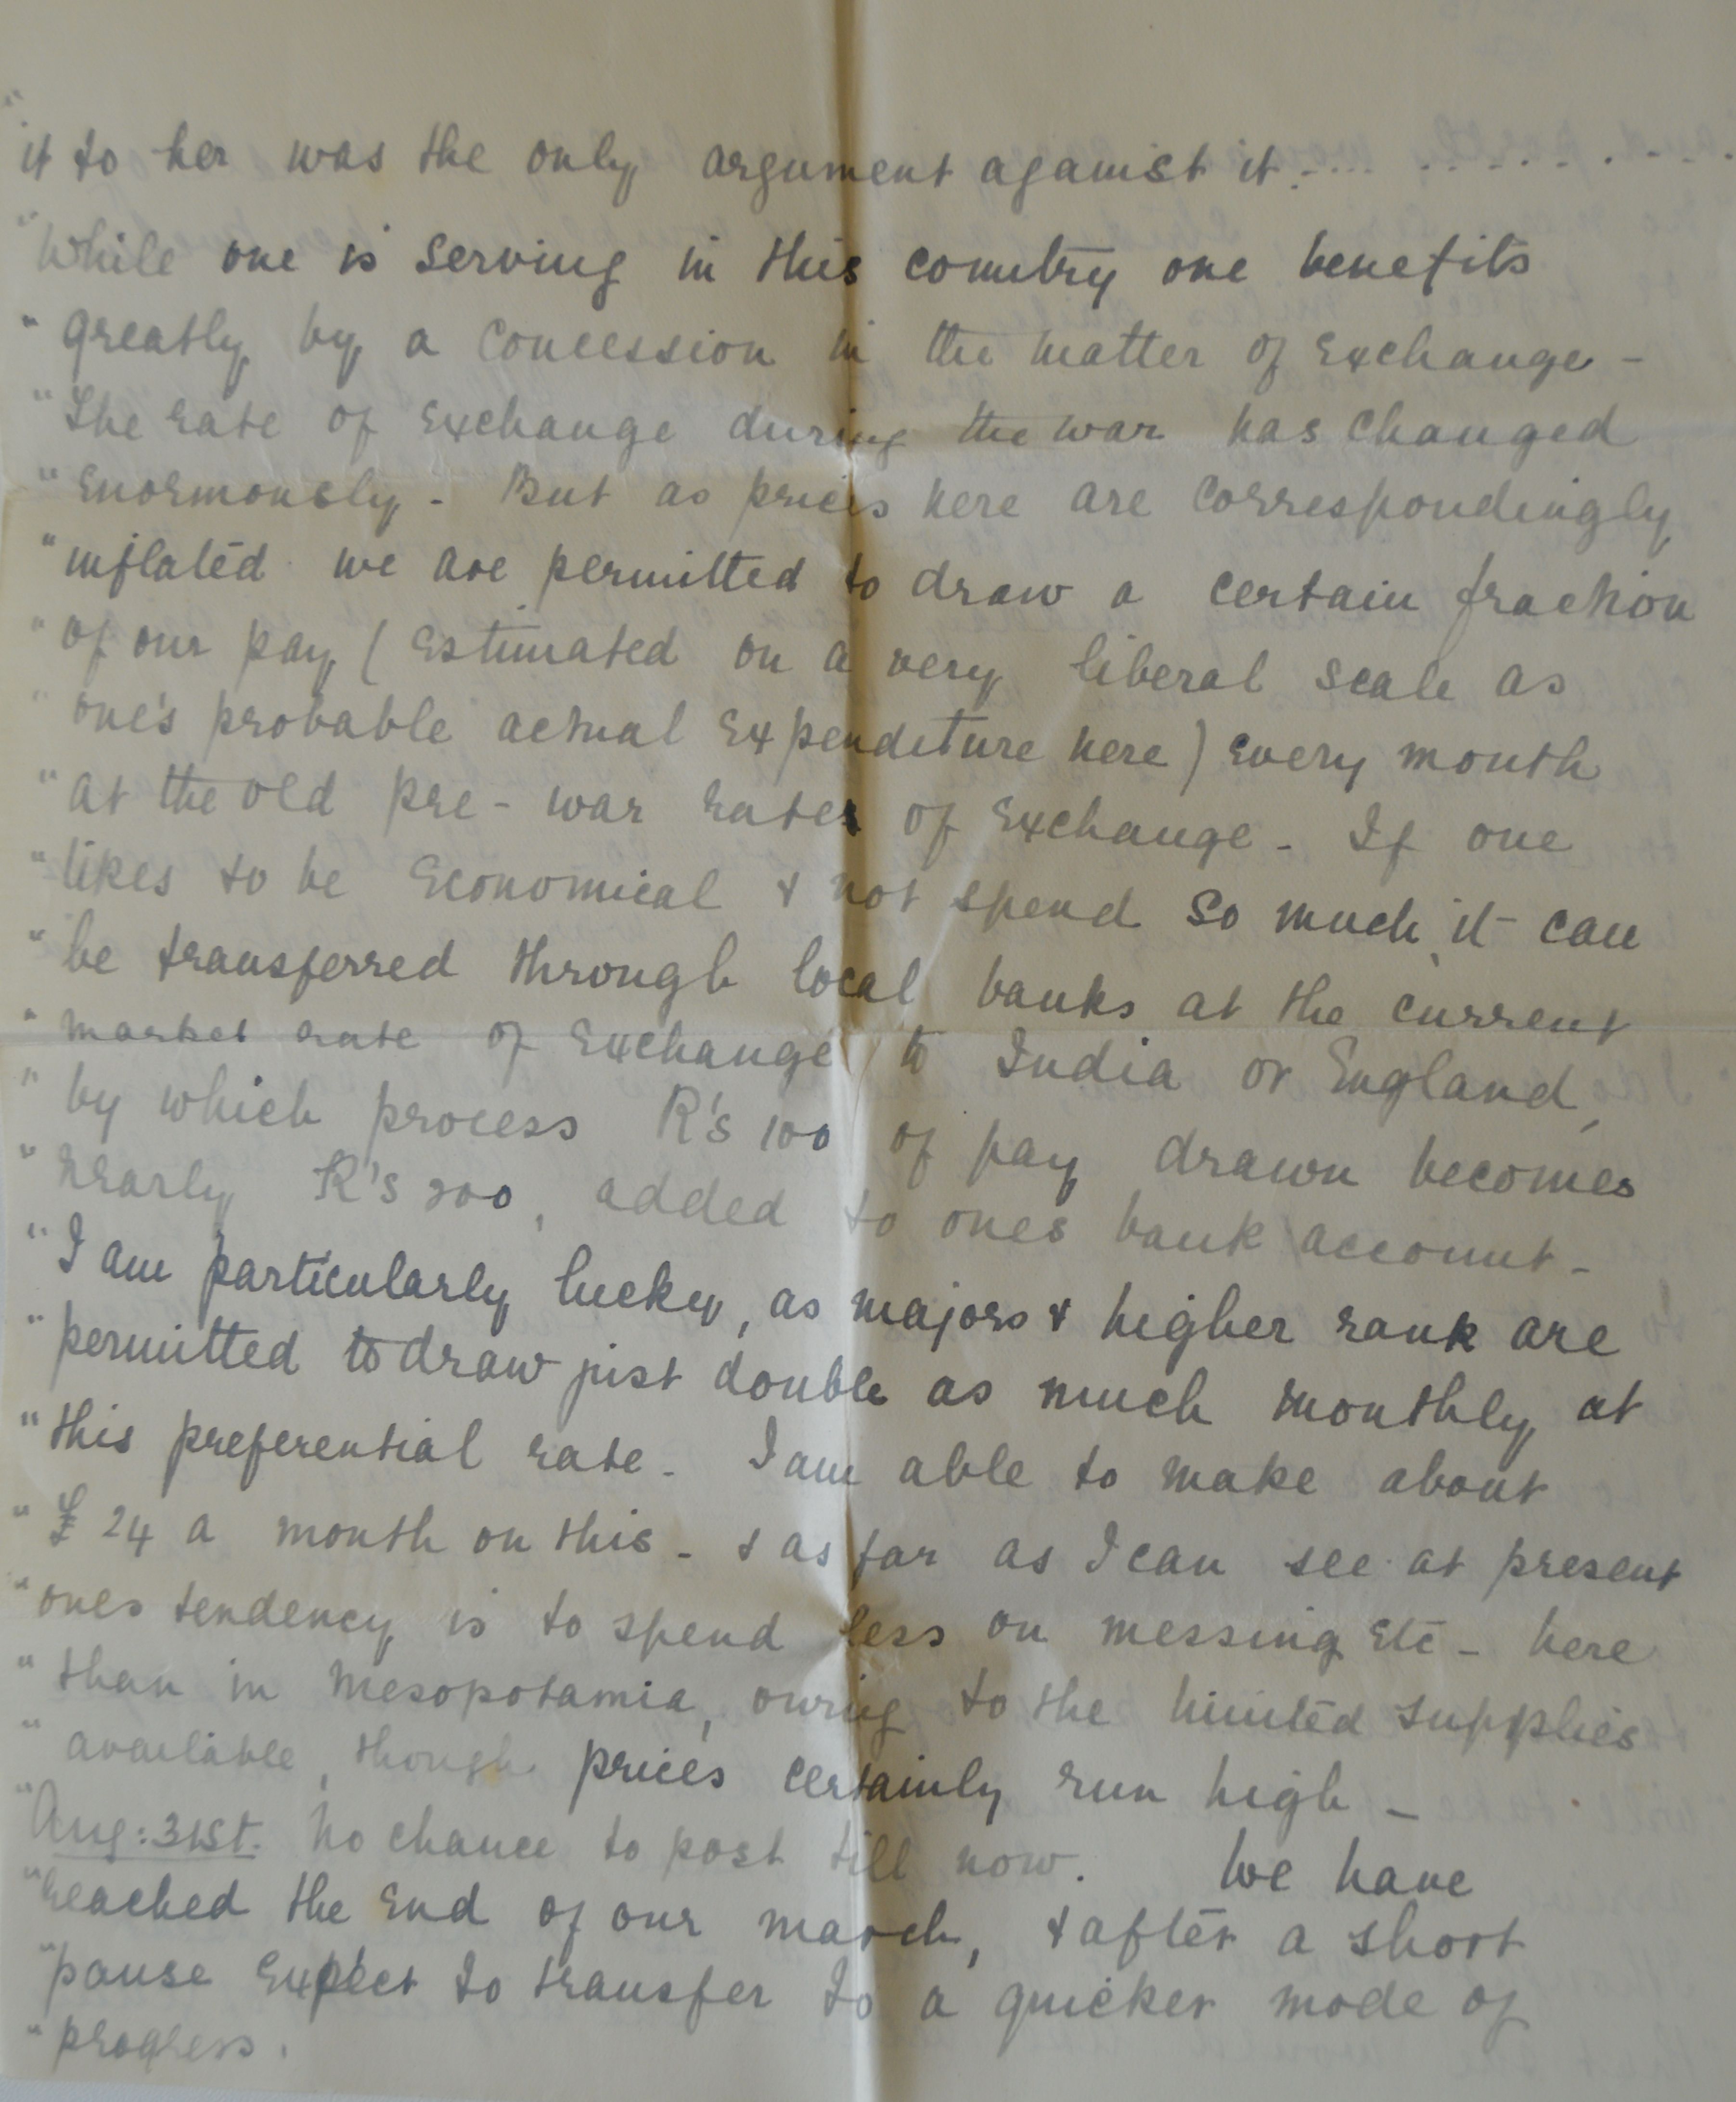 "it to her was the only argument against it .... . . . . . . . .
"While one is serving in this country one benefits
"greatly by a concession in the matter of exchange -
"The rate of exchange during the war has changed
"enormously - But as prices here are correspondingly
"inflated we are permitted to draw a certain fraction
"of our pay (estimated on a very liberal scale as
"one's probable actual expenditure here) every month
"at the old pre-war rates of exchange - If one
"likes to be economical & not spend so much, it can
"be transferred through local banks at the current
"market rate of exchange to India or England,
"by which process R's 100 of pay drawn becomes
"nearly R's 200, added to ones bank account -
"I am particularly lucky, as majors & higher rank are
"permitted to draw just double as much monthly at
"this preferential rate - I am able to make about
"£24 a month on this - & as far as I can see at present
"ones tendency is to spend less on messing etc - here
"than in Mesopotamia, owing to the limited supplies
"available, though prices certainly run high -
"Aug: 31st. No chance to post till now. We have
"reached the end of our march, & after a short
"pause expect to transfer to a quicker mode of
"progress.